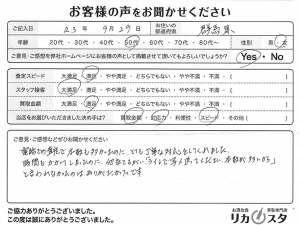 お客様の声をお聞かせください
ご記入日 23年 9月29日 お住いの都道府県 群馬県
年齢 20代・30代・40代・50代・60代・70代・80代〜 性別 男・女
ご意見・ご感想を弊社ホームページにお客様の声として掲載させて頂いてもよろしいでしょうか? Yes・No
査定スピード 大満足・満足・やや満足・どちらでもない・やや不満・不満・( )
スタッフ接客 大満足・満足・やや満足・どちらでもない・やや不満・不満・( )
買取金額 大満足・満足・やや満足・どちらでもない・やや不満・不満・( )
当店をお選びいただきました決め手は? 買取金額・対応力・利便性・スピード・その他( )
ご意見・ご感想などぜひお聞かせください。
とても丁寧な対応をしてくれました。
時間もかかりましたのに
と言われなかったのはありがたかったです
ご協力ありがとうございました。
この度は誠にありがとうございました。
お酒買取専門店
リカスタ